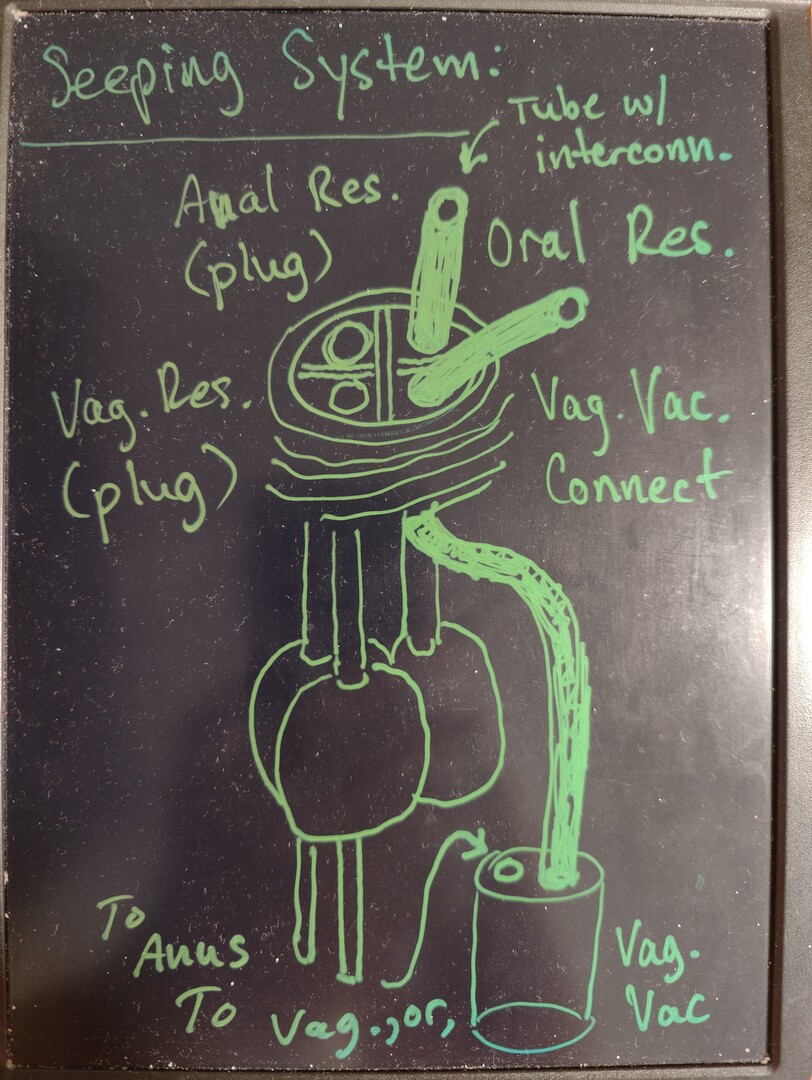 Seeping System:
Tube w/
interconn.
Anal Res.
(plug)
Oral Res.
Vag. Res.
(plug)
Vag. Vac.
Connect
To
Anus
To
Vag., or,
Vag.
Vac